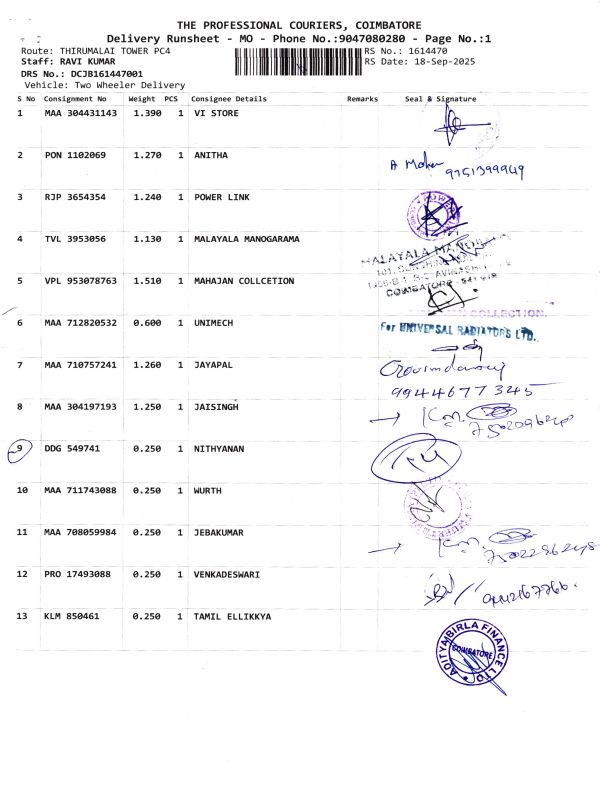 THE PROFESSIONAL COURIERS, COIMBATORE
Delivery Runsheet - MO - Phone No.:9047080280 - Page No.:1
Route: THIRUMALAI TOWER PC4 RS No.: 1614470
Staff: RAVI KUMAR RS Date: 18-Sep-2025
DRS No.: DCJB161447001
Vehicle: Two Wheeler Delivery
S No Consignment No Weight PCS Consignee Details Remarks Seal & Signature
1 MAA 304431143 1.390 1 VI STORE
2 PON 1102069 1.270 1 ANITHA
9751399949
3 RJP 3654354 1.240 1 POWER LINK
4 TVL 3953056 1.130 1 MALAYALA MANOGARAMA
MALAYALA
COIMBATORE
5 VPL 953078763 1.510 1 MAHAJAN COLLCETION
COLLECTION.
6 MAA 712820532 0.600 1 UNIMECH
For UNIVERSAL RADIATORS LTD.
7 MAA 710757241 1.260 1 JAYAPAL
9944677345
8 MAA 304197193 1.250 1 JAISINGH
9 DDG 549741 0.250 1 NITHYANAN
10 MAA 711743088 0.250 1 WURTH
11 MAA 708059984 0.250 1 JEBAKUMAR
12 PRO 17493088 0.250 1 VENKADESWARI
13 KLM 850461 0.250 1 TAMIL ELLIKKYA
ADITYA BIRLA FINANCE LTD
COIMBATORE